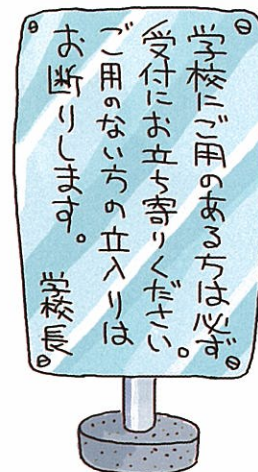 学校にご用のある方は必ず
受付にお立ち寄りください。
ご用のない方の立入りは
お断りします。
学校長